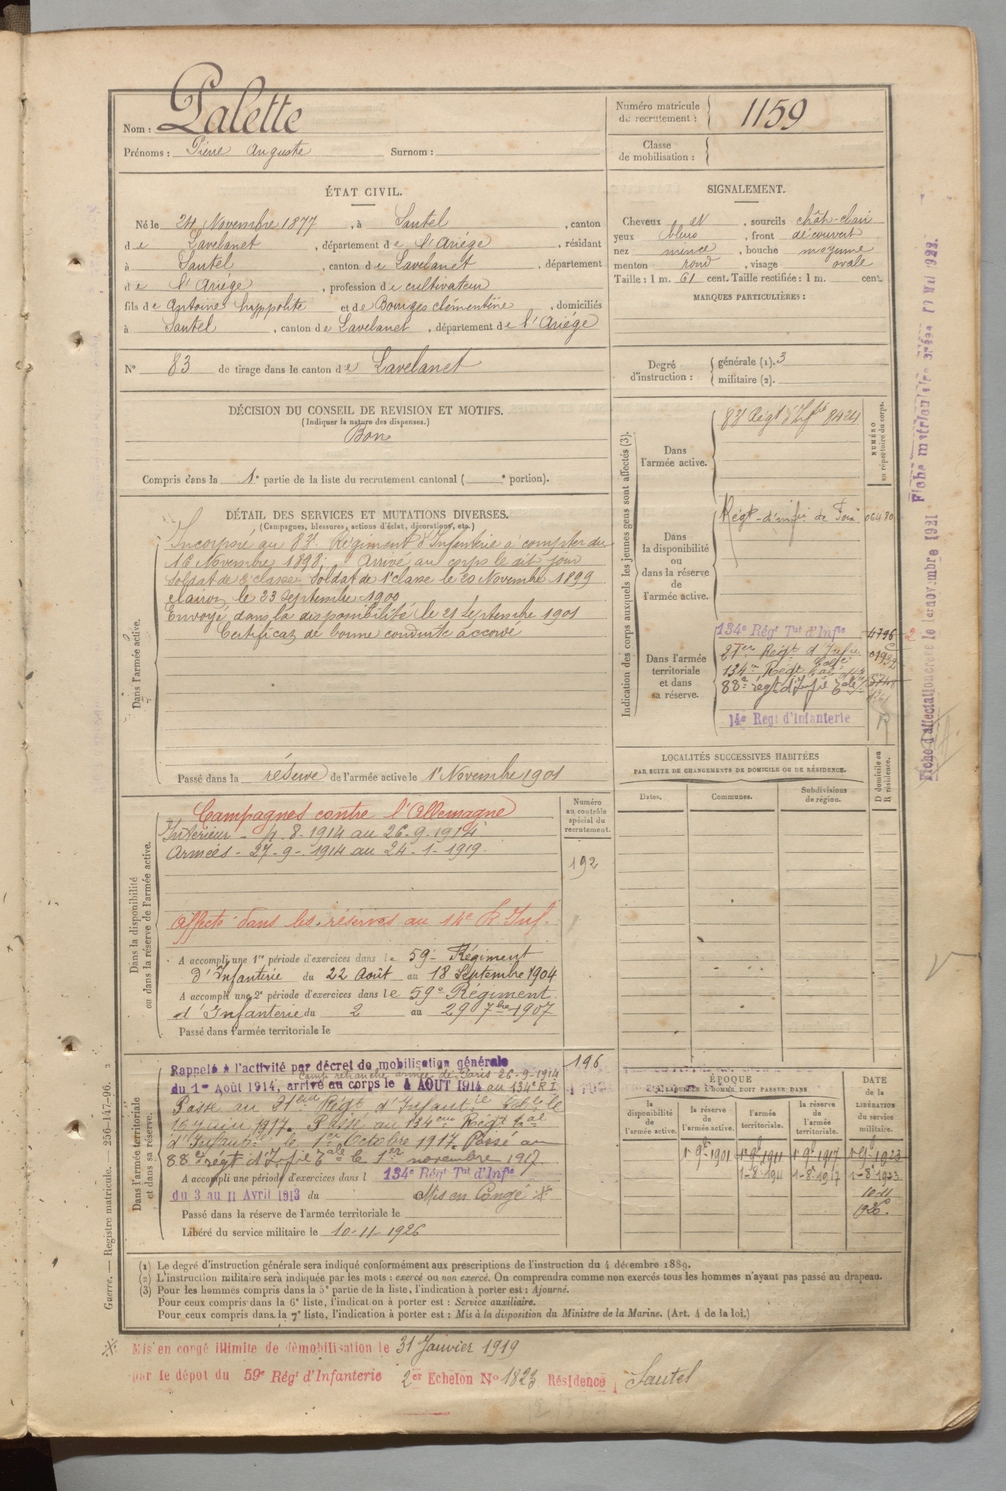 Nom : Palette
Prénoms : Pierre Auguste Surnom :
Numéro matricule
de recrutement : 1159
Classe
de mobilisation :
ÉTAT CIVIL.
Né le 24 Novembre 1877, à Sautel, canton
de Lavelanet, département de l'Ariége, résidant
à Sautel, canton de Lavelanet, département
de l'Ariége, profession de cultivateur
fils de Antoine Hyppolite et de Bourges Clémentine, domiciliés
à Sautel, canton de Lavelanet, département de l'Ariége
N° 83 de tirage dans le canton de Lavelanet
SIGNALEMENT.
Cheveux et, sourcils chât-clair
yeux bleus, front découvert
nez mince, bouche moyenne
menton rond, visage ovale
Taille : 1 m. 61 cent. Taille rectifiée : 1 m. cent.
MARQUES PARTICULIÈRES :
Degré
d'instruction :
générale (1). 3
militaire (2).
DÉCISION DU CONSEIL DE REVISION ET MOTIFS.
(Indiquer la nature des dispenses.)
Bon
Compris dans la 1e partie de la liste du recrutement cantonal ( e portion).
DÉTAIL DES SERVICES ET MUTATIONS DIVERSES.
(Campagnes, blessures, actions d'éclat, décorations, etc.)
Dans l'armée active.
Incorporé au 83e Régiment d'Infanterie à compter du
16 Novembre 1898. Arrivé au corps le dit jour
soldat de 2e classe. Soldat de 1e classe le 20 Novembre 1899
clairon le 23 Septembre 1900
Envoyé dans la disponibilité le 21 Septembre 1901
Certificat de bonne conduite accordé
Passé dans la réserve de l'armée active le 1er Novembre 1901
Indication des corps auxquels les jeunes gens sont affectés (3).
NUMÉRO
au répertoire du corps.
Dans
l'armée active.
83 Régt d'Infie 8424
Dans
la disponibilité
ou
dans la réserve
de
l'armée active.
Régt d'infie de Foix 06480
Dans l'armée
territoriale
et dans
sa réserve.
134e Régt Tal d'Infie 4796
134e Régt
88e régt d'Infie
14e Regt d'Infanterie
Fiche d'affectation créée le 1er novembre 1921
Fiche matriculaire
LOCALITÉS SUCCESSIVES HABITÉES
PAR SUITE DE CHANGEMENTS DE DOMICILE OU DE RÉSIDENCE.
D domicile ou
R résidence.
Dates. Communes. Subdivisions
de région.
Dans la disponibilité
ou dans la réserve de l'armée active.
Numéro
au contrôle
spécial du
recrutement.
192
Campagnes contre l'Allemagne
Intérieur - 4-8-1914 au 26-9-1914
Armées - 27-9-1914 au 24-1-1919
Affecté dans les réserves au 14e R. Inf.
A accompli une 1re période d'exercices dans le 59e Régiment
d'Infanterie du 22 Août au 18 Septembre 1904
A accompli une 2e période d'exercices dans le 59e Régiment
d'Infanterie du 2 au 29 7bre 1907
Passé dans l'armée territoriale le
Dans l'armée territoriale
et dans sa réserve.
196
Rappelé à l'activité par décret de mobilisation générale
Camp retranché armée de Paris 26-9-1914
du 1er Août 1914, arrivé au corps le 4 AOUT 1914 au 134e R.I.
Passé au 31ème Régt d'Infantie le
16 juin 1917. Passé au 134e Régt Tal
d'Infantie le 1er Octobre 1917. Passé au
88e régt d'Infie Tale le 1er novembre 1917
A accompli une période d'exercices dans l 134e Régt Tal d'Infie
du 3 au 11 Avril 1913 du Mis en Congé ※
Passé dans la réserve de l'armée territoriale le
Libéré du service militaire le 10-11-1926
ÉPOQUE
À LAQUELLE L'HOMME DOIT PASSER DANS
DATE
de la
LIBÉRATION
du service
militaire.
la
disponibilité
de l'armée
active.
la réserve
de
l'armée active.
l'armée
territoriale.
la réserve
de
l'armée
territoriale.
1er 9bre 1901 1er 9bre 1911 1er 9bre 1917 1er 9bre 1923
1-8-1911 1-8-1917 1-8-1923
10-11
1926
(1) Le degré d'instruction générale sera indiqué conformément aux prescriptions de l'instruction du 4 décembre 1889.
(2) L'instruction militaire sera indiquée par les mots : exercé ou non exercé. On comprendra comme non exercés tous les hommes n'ayant pas passé au drapeau.
(3) Pour les hommes compris dans la 5e partie de la liste, l'indication à porter est : Ajourné.
Pour ceux compris dans la 6e liste, l'indication à porter est : Service auxiliaire.
Pour ceux compris dans la 7e liste, l'indication à porter est : Mis à la disposition du Ministre de la Marine. (Art. 4 de la loi.)
Guerre. — Registre matricule. — 256-147-96.
※ Mis en congé illimité de démobilisation le 31 Janvier 1919
par le dépôt du 59e Régt d'Infanterie 2er Echelon N° 1823 Résidence Sautel